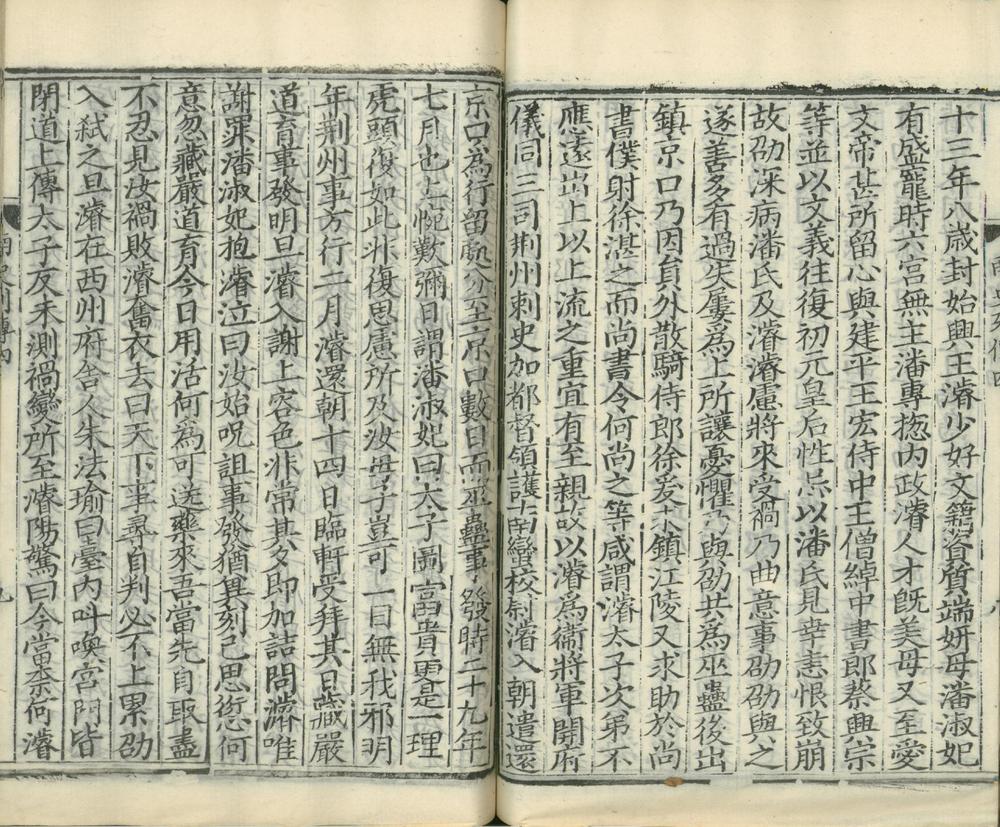 十三年八歲封始興王濬少好文籍資質端妍母潘淑妃
有盛寵時六宮無主潘專揔內政濬人才旣美母又至愛
文帝甚所留心與建平王宏侍中王僧綽中書郎蔡興宗
等並以文義往復初元皇后性忌以潘氏見幸恚恨致崩
故劭深病潘氏及濬濬慮將來受禍乃曲意事劭劭與之
遂善多有過失屢爲上所讓憂懼乃與劭共爲巫蠱後出
鎮京口乃因員外散騎侍郎徐爰求鎮江陵又求助於尚
書僕射徐湛之而尚書令何尚之等咸謂濬太子次弟不
應遠出上以上流之重宜有至親故以濬爲衞將軍開府
儀同三司荆州刺史加都督領護南蠻校尉濬入朝遣還
京口爲行留處分至京口數日而巫蠱事發時二十九年
七月也上惋歎彌日謂潘淑妃曰太子圖富貴更是一理
虎頭復如此非復思慮所及汝母子豈可一日無我邪明
年荆州事方行二月濬還朝十四日臨軒受拜其日藏嚴
道育事發明旦濬入謝上容色非常其夕即加詰問濬唯
謝罪潘淑妃抱濬泣曰汝始呪詛事發猶兾刻己思愆何
意忽藏嚴道育今日用活何爲可送藥來吾當先自取盡
不忍見汝禍敗濬奮衣去曰天下事尋自判必不上累劭
入弒之旦濬在西州府舍人朱法瑜曰臺內叫喚宮門皆
閉道上傳太子反未測禍變所至濬陽驚曰今當柰何濬